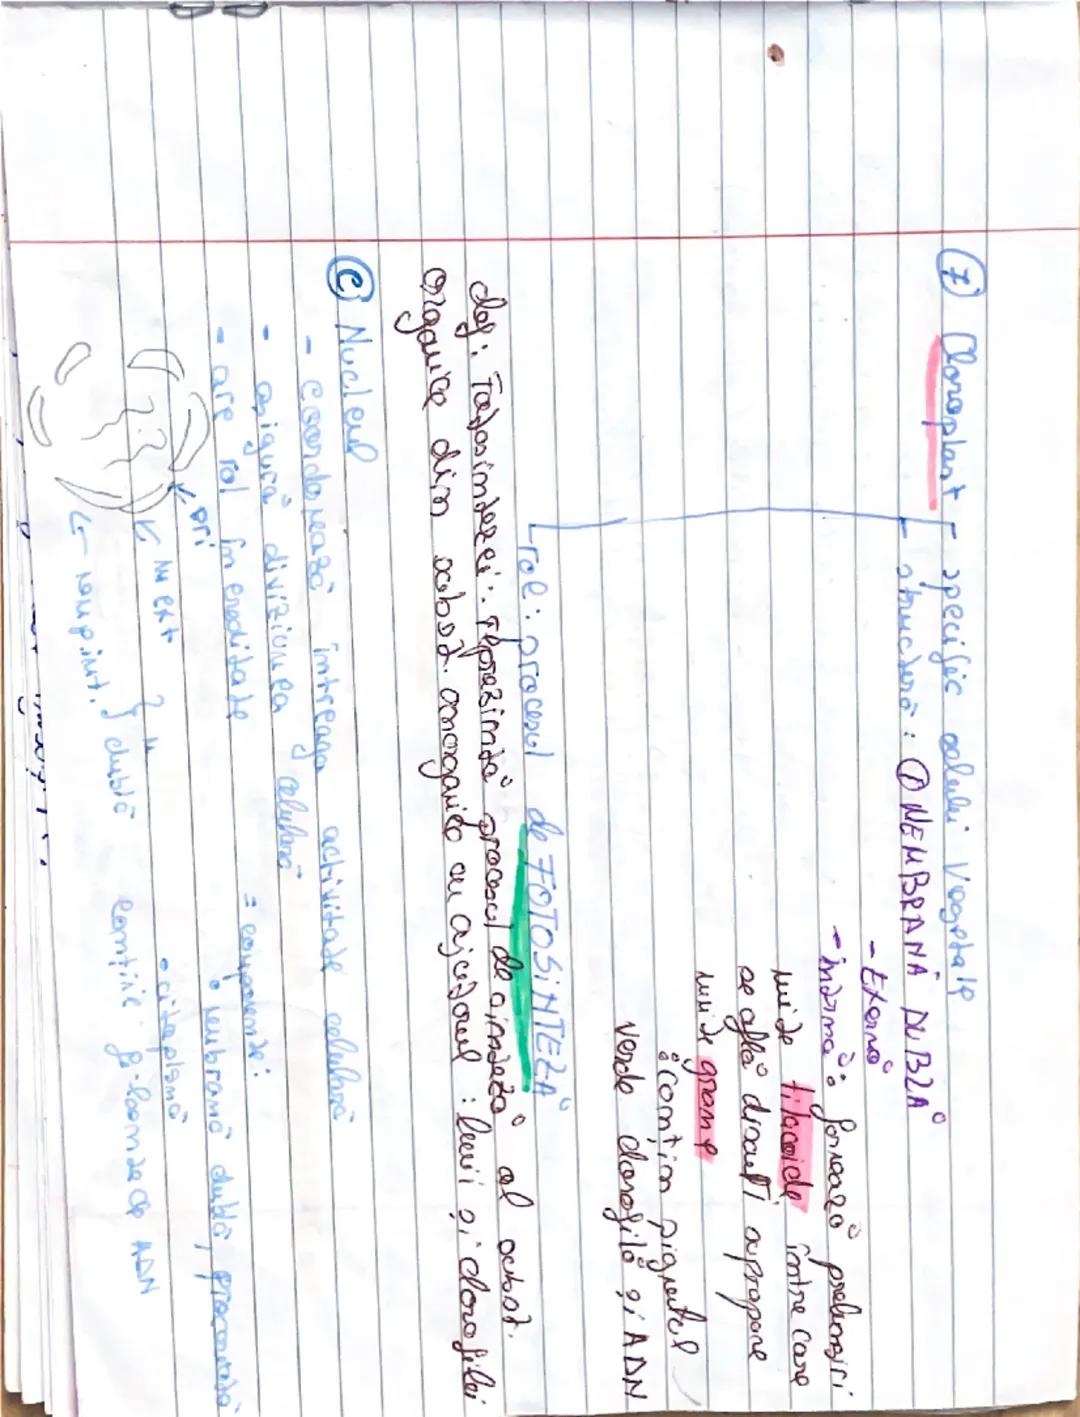 ⑦ Cloroplast - specific celulei vegetale
- structură: ① MEMBRANĂ DUBLĂ
- Externă
- internă: formează prelungiri
numite tilacoide între care
se află discuri suprapuse
numite grane
: conțin pigmentul
verde clorofilă și ADN
- rol: procesul de FOTOSINTEZĂ
def: Fotosintezei: reprezintă procesul de sinteză al subst.
organice din subst. anorganice cu ajutorul: luminii și clorofilei
Ⓒ Nucleul
- coordonează întreaga activitate celulară
- asigură diviziunea celulară
- are rol în ereditate
= componente:
• membrană dublă,
pori
m ext
m
dublă
• citoplasmă
conține ADN